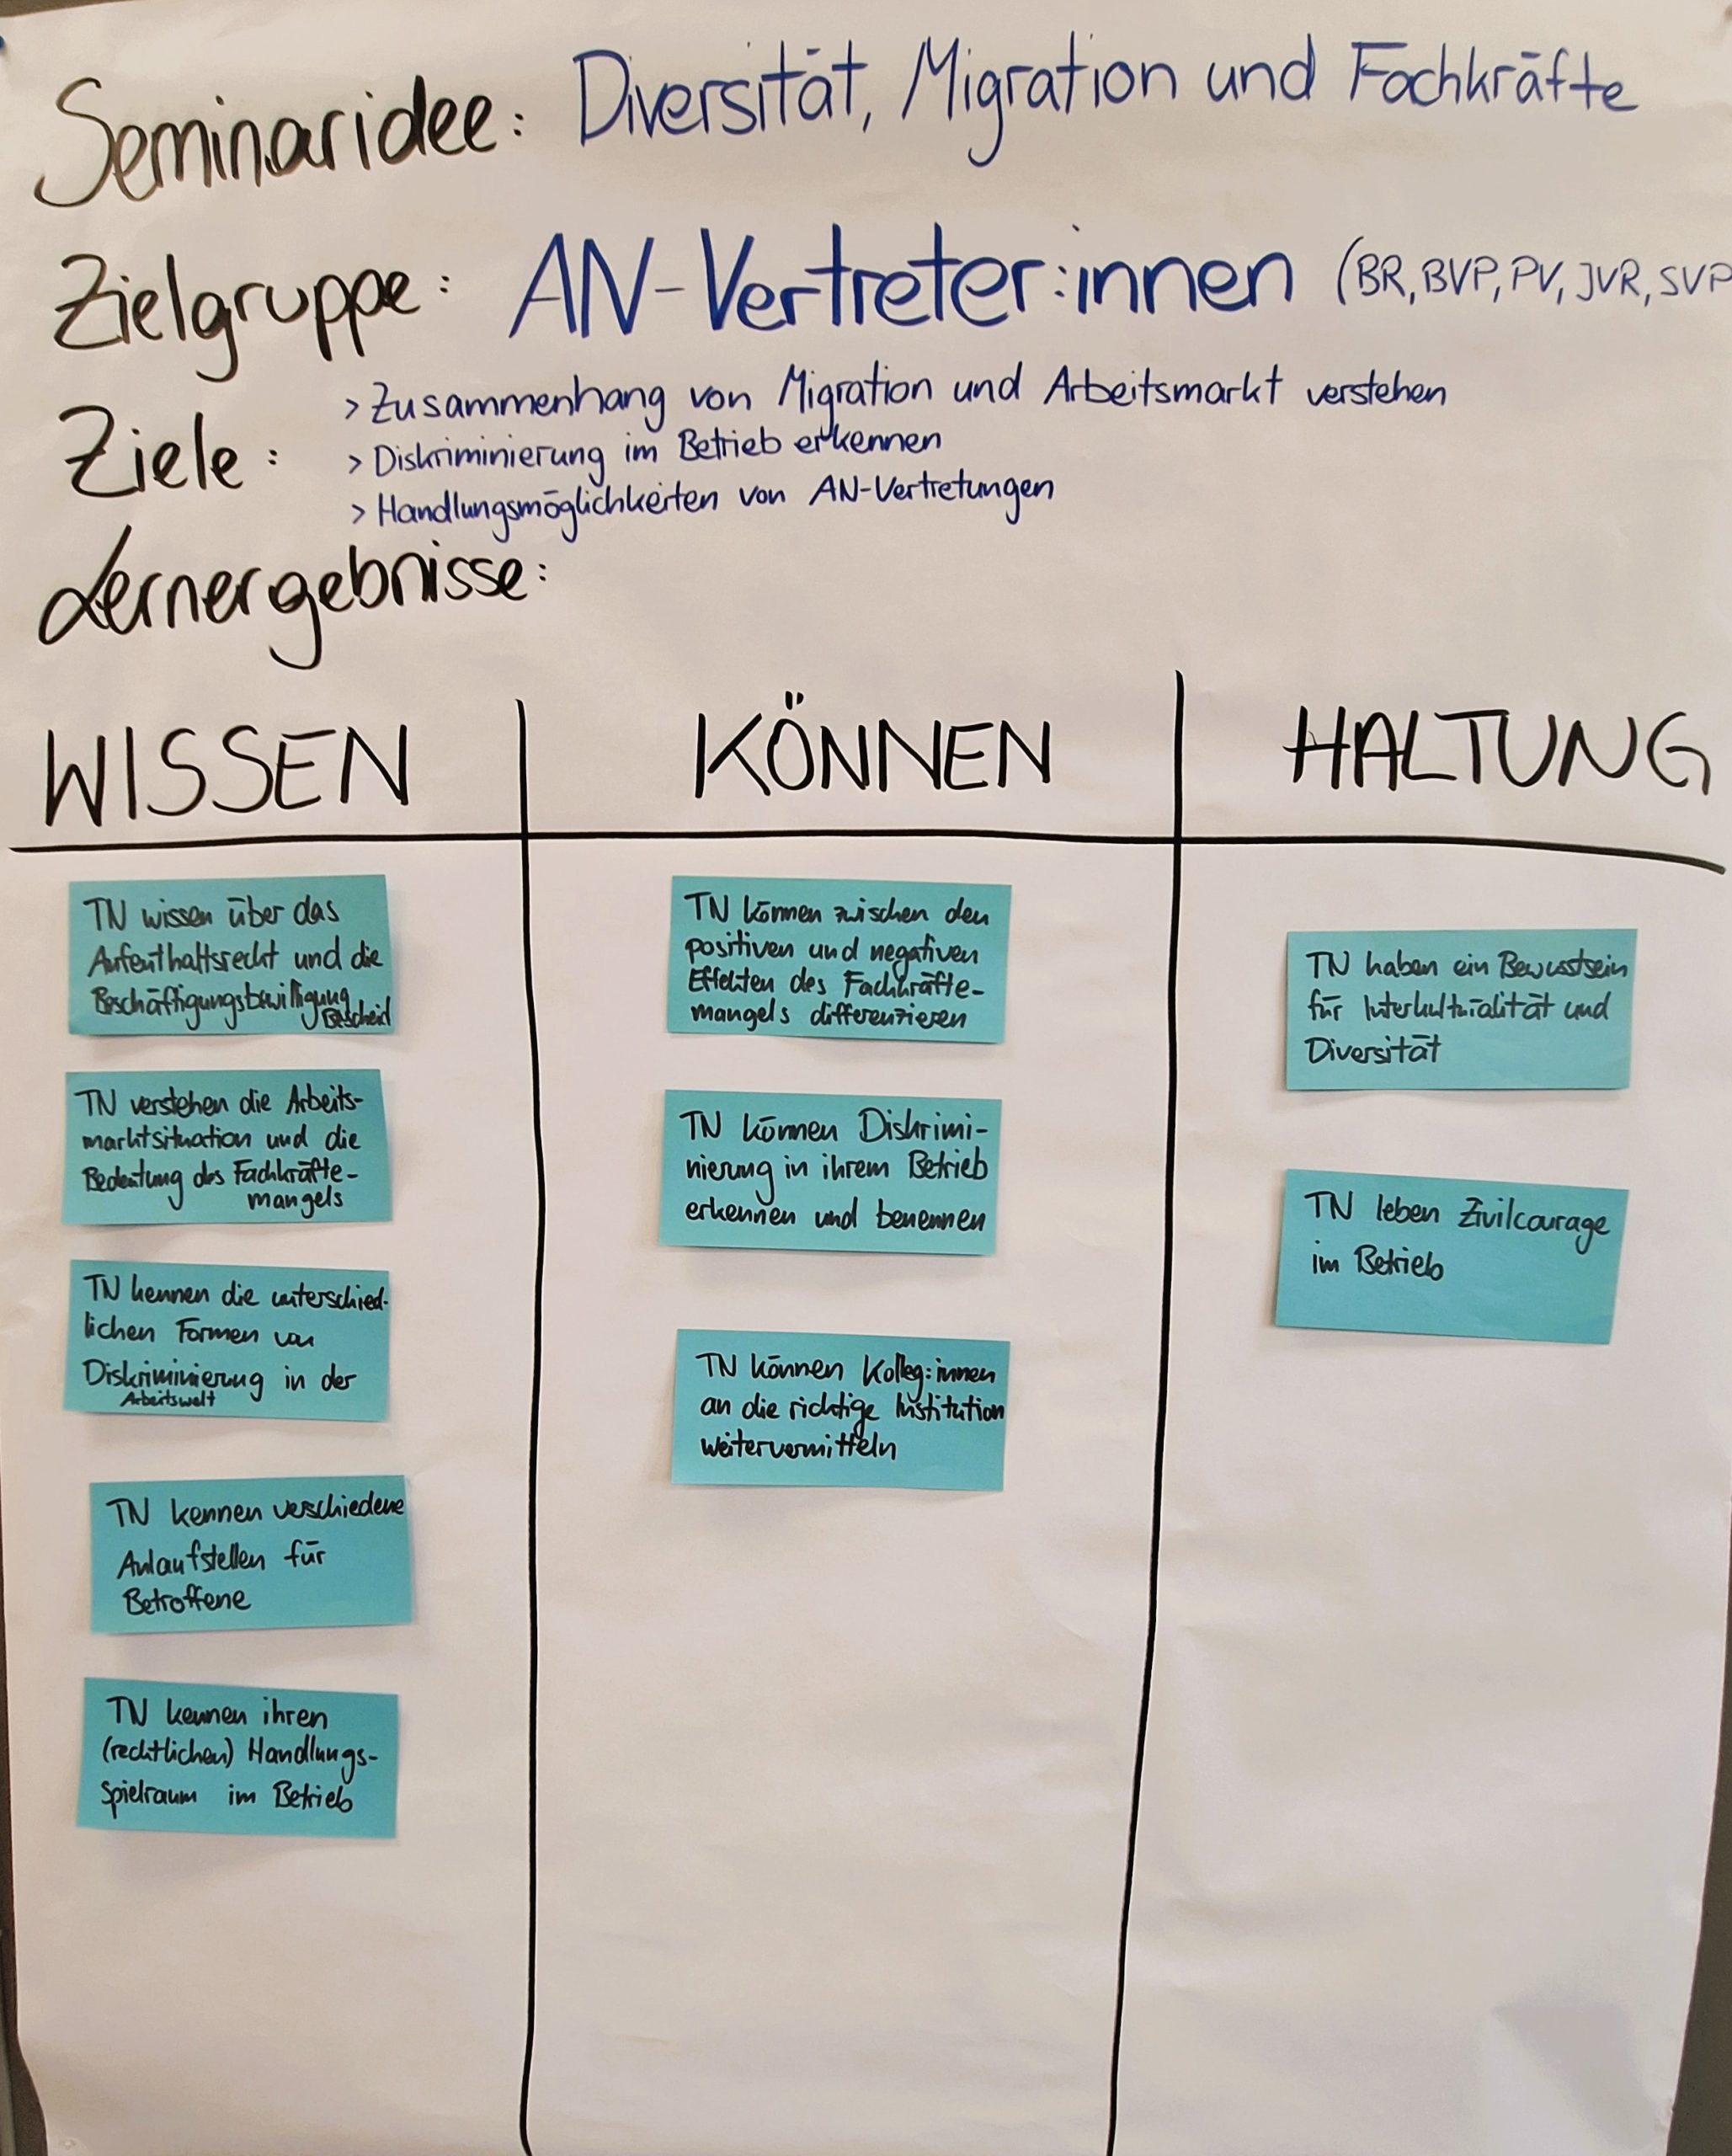 Seminaridee: Diversität, Migration und Fachkräfte
Zielgruppe: AN-Vertreter:innen (BR, BVP, PV, JVR, SVP
Ziele:
> Zusammenhang von Migration und Arbeitsmarkt verstehen
> Diskriminierung im Betrieb erkennen
> Handlungsmöglichkeiten von AN-Vertretungen
Lernergebnisse:
WISSEN
TN wissen über das
Aufenthaltsrecht und die
Beschäftigungsbewilligung
Bescheid
TN verstehen die Arbeits-
marktsituation und die
Bedeutung des Fachkräfte-
mangels
TN kennen die unterschied-
lichen Formen von
Diskriminierung in der
Arbeitswelt
TN kennen verschiedene
Anlaufstellen für
Betroffene
TN kennen ihren
(rechtlichen) Handlungs-
spielraum im Betrieb
KÖNNEN
TN können zwischen den
positiven und negativen
Effekten des Fachkräfte-
mangels differenzieren
TN können Diskrimi-
nierung in ihrem Betrieb
erkennen und benennen
TN können Kolleg:innen
an die richtige Institution
weitervermitteln
HALTUNG
TN haben ein Bewusstsein
für Interkulturalität und
Diversität
TN leben Zivilcourage
im Betrieb